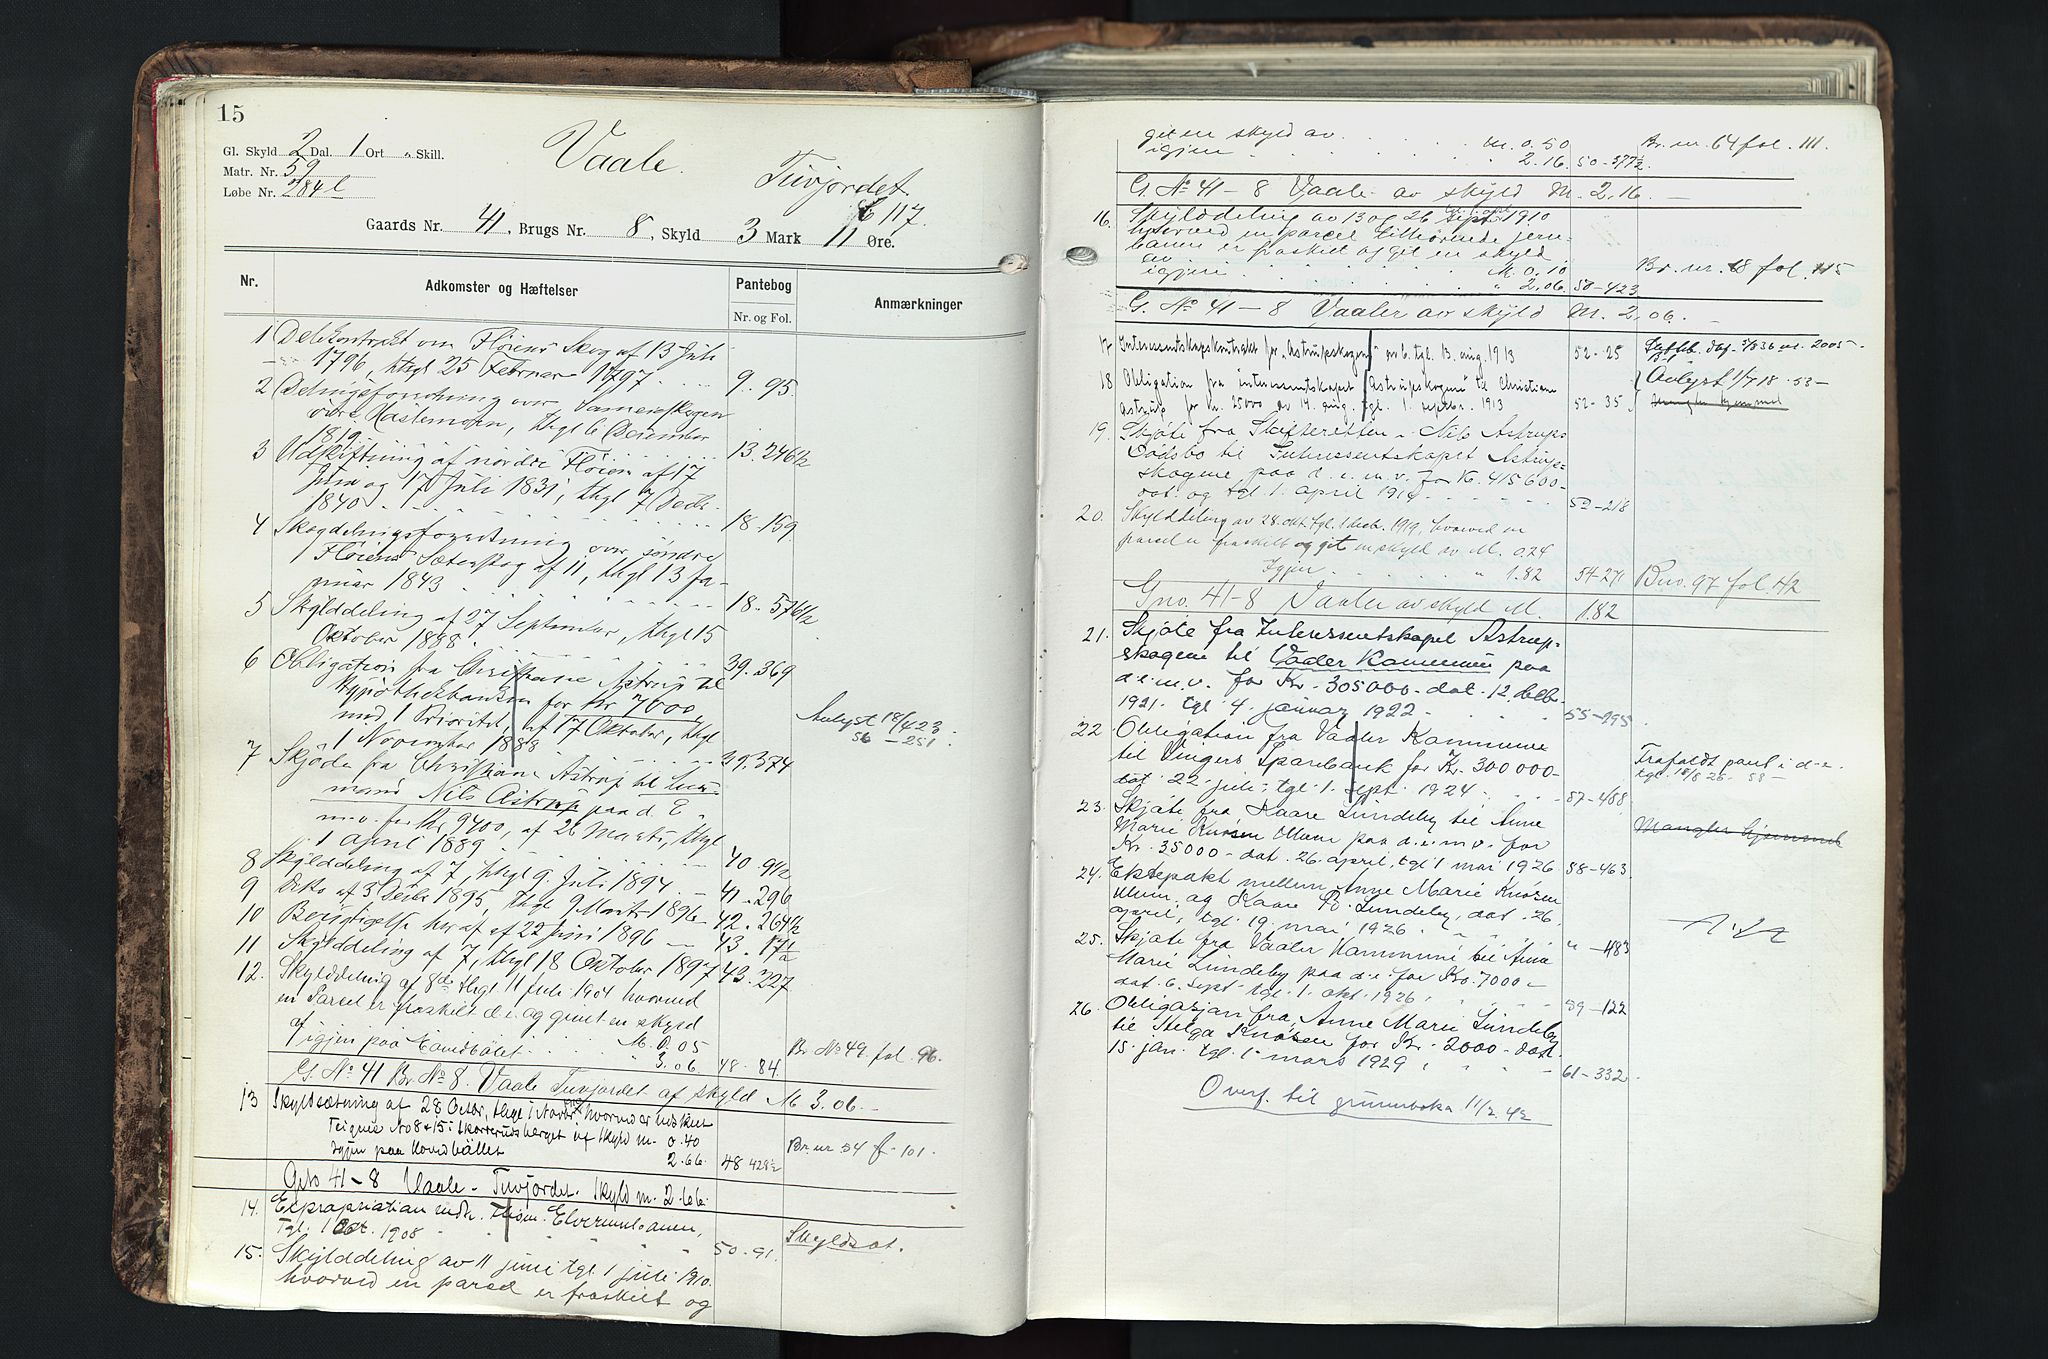 15
Gl. Skyld 2 Dal. 1 Ort „ Skill.
Matr. Nr. 59
Løbe Nr. 284 l
Vaale. Tuvjordet.
117.
Gaards Nr. 41, Brugs Nr. 8, Skyld 3 Mark 11 Øre.
Nr. Adkomster og Hæftelser Pantebog Anmærkninger
Nr. og Fol.
1 Delekontrakt om Fløiens Skog af 13 Juli
1796, thgl 25 Februar 1797 9. 95.
2 Delingsforretning over Sameieskogen
østre Hastemoen, thgl 6 December
1819. 13. 246½
3 Udskiftning af nordre Fløien af 17
Juni og 17 Juli 1831, thgl 7 Decbr.
1840. 18. 159
4 Skogdelingsforretning over søndre
Fløiens Sæterskog af 11, thgl 13 Ja-
nuar 1843 18. 576½
5 Skylddeling af 27 September, thgl 15
Oktober 1888. 39. 369
6 Obligation fra Christiane Astrup til
Hypothekbanken for Kr 7600,
med 1 Prioritet, af 17 Oktober, thgl
1 November 1888 Avlyst 18/4 23
56 - 251
39. 374
7 Skjøde fra Christiane Astrup til Lens-
mand Nils Astrup paa d. E.
m. v. for Kr 9400, af 26 Marts, thgl
1 April 1889 40. 94½
8 Skylddeling af 7, thgl 9 Juli 1894. 41. 296
9 Dito af 3 Decbr 1895, thgl 9 Marts 1896 42. 264½
10 Berigtigelse her af, af 22 Juni 1896 43. 171
11 Skylddeling af 7, thgl 18 Oktober 1897 43. 227
12. Skylddeling af 8de thgl 11 Juli 1901 hvorved
en Parcel er fraskilt d. e. og givet en skyld
af M. 0.05 Br. No 49. fol. 96.
igjen paa Hovedbølet " 3.06. 48 - 84.
G. No 41 Br. No 8. Vaale Tuvjordet af skyld M 3.06.
13 Skyldsætning af 28 Octbr, thgl 1 Novbr hvorved er udskilt
Teigene No 8 & 15: Skotterudsberget af Skyld m. 0.40
Igjen paa Hovedbøllet 2.66. 48 428½ Br. nr 54 f. 101.
Gno 41 - 8 Vaale - Tuvjordet. Skyld m. 2.66.
14. Expropriation vedk. Elverumbanen,
Tgl. 1 Oct. 1908 50 - 91. Skyldsat.
15. Skylddeling av 11 juni tgl. 1 juli 1910.
hvorved en parsel er fraskilt og
git en skyld av M. 0.50 Br. nr. 64 fol. 111.
igjen " 2.16. 50 - 577½
G. No 41 - 8 Vaale av skyld M. 2.16.
16. Skylddeling av 13 og 26 sept. 1910
hvorved en parcel tilhørende jern-
banen er fraskilt og git en skyld
av M. 0.10 Br. nr. 68 fol. 115
igjen " 2.06. 50 - 423
G. No 41 - 8 Vaaler av skyld M. 2.06.
17 Interessentskapskontrakt for "Astrupskogene" av 6. tgl. 13. aug. 1913 52 - 25
18 Obligation fra interessentskapet "Astrupskogene" til Christiane Avlyst 1/7 18. 53 -
Astrup for kr. 25000 av 14. aug. tgl. 1. septbr. 1913 52 - 35
19. Skjøte fra Skifteretten i Nils Astrups
Dødsbo til Interessentskapet Astrup-
skogene paa d. e. m. v. for K. 415600 -
dat. og tgl. 1. april 191 52 - 218
20. Skylddeling av 28. okt. tgl. 1 decb. 1919, hvorved en
parcel er fraskilt og git en skyld av M. 0.24
Igjen " 1.82 54 - 271 Bno. 97 fol. 42
Gno. 41 - 8 Vaaler av skyld M. 1.82
21. Skjøte fra Interessentskapet Astrup-
skogene til Vaaler Kommune paa
d. e. m. v. for Kr. 305000 - dat. 12. decb.
1921. tgl. 4. januar 1922 - 55 - 295
22 Obligation fra Vaaler Kommune
til Vingers Sparebank for Kr. 300000 -
dat. 22. juli, tgl. 1. sept. 1924 57 - 488
Frafaldt pant i d. e.
tgl. 15/8 25. 58 -
23. Skjøte fra Kaare Lundeby til Anne
Marie Knøsen Ulum paa d. e. m. v. for
Kr. 35000 - dat. 26. april, tgl 1 mai 1926 58 - 463
Mangler hjemmel
24. Ektepakt mellem Anne Marie Knøsen
Ulum og Kaare B. Lundeby, dat. 26.
april, tgl. 19. mai 1926. " - 483
25. Skjøte fra Vaaler Kommune til Anne
Marie Lundeby paa d. e. for Kr. 7000 -
dat. 6. sept. - tgl. 1. okt. 1926 59 - 122
26. Obligasjon fra Anne Marie Lundeby
til Helga Knøsen for Kr. 2000 - dat.
15. jan. tgl. 1 mars 1929 61 - 332
Overf. til grunnboka 11/2 42